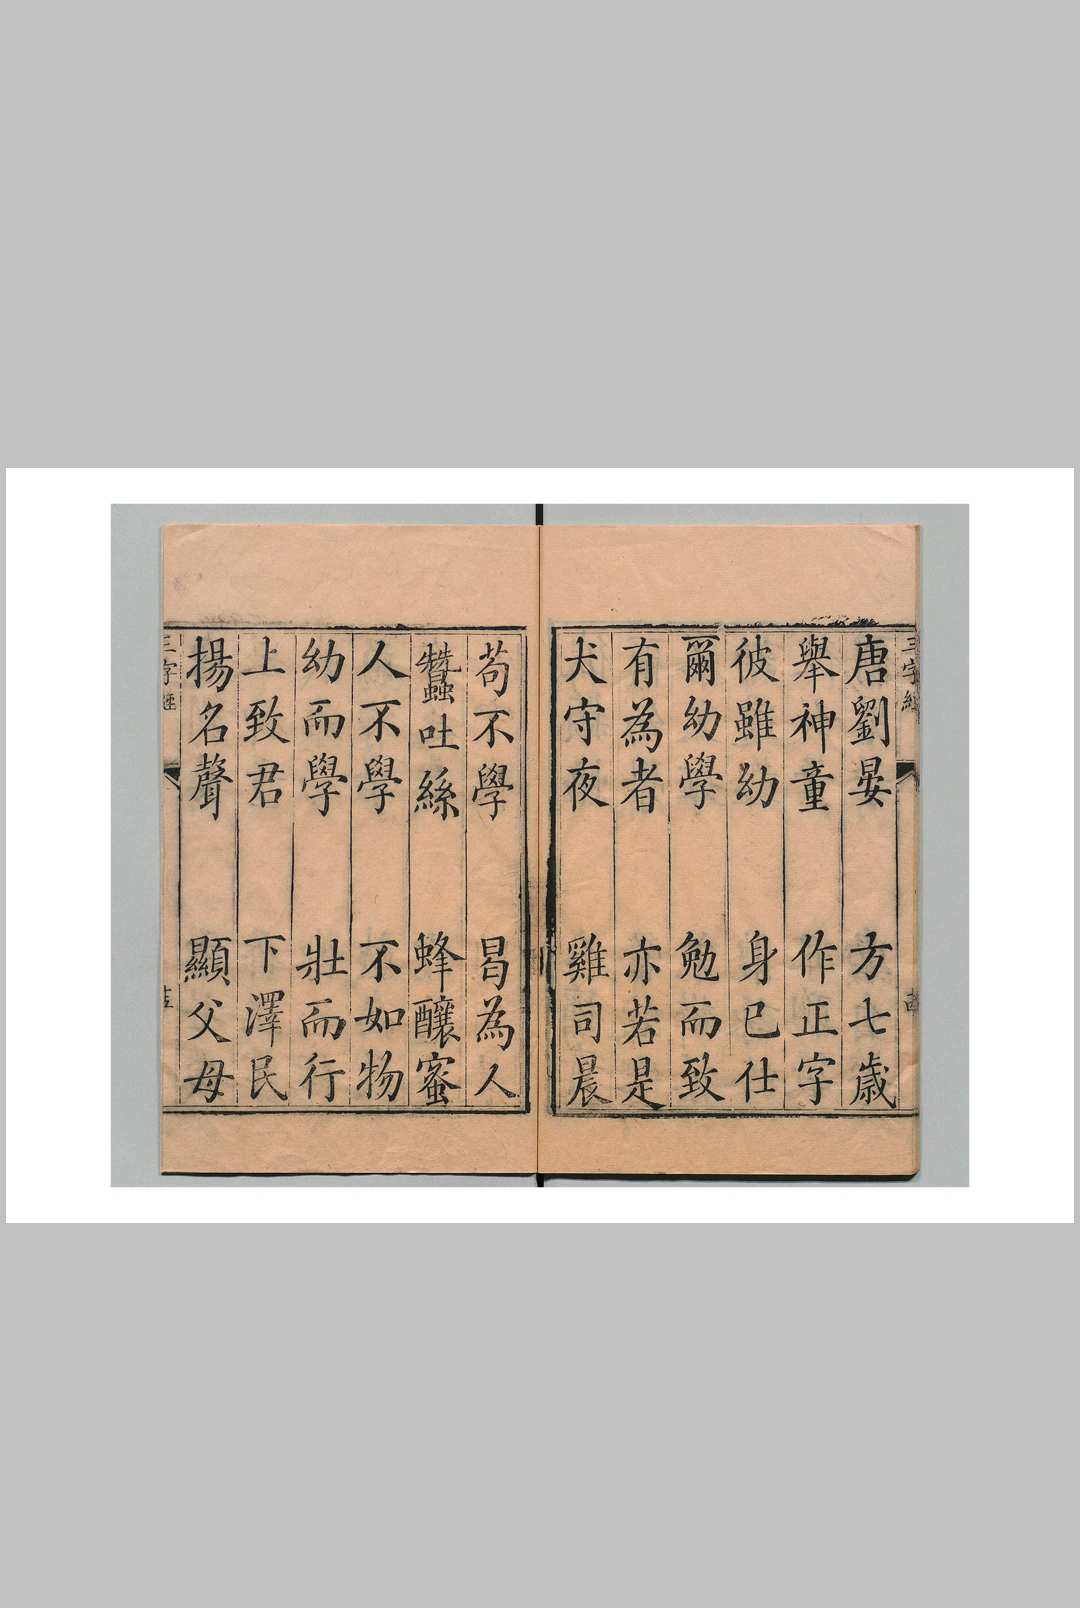 三字經
唐劉晏 方七歲
舉神童 作正字
彼雖幼 身已仕
爾幼學 勉而致
有為者 亦若是
犬守夜 雞司晨
苟不學 曷為人
蠶吐絲 蜂釀蜜
人不學 不如物
幼而學 壯而行
上致君 下澤民
揚名聲 顯父母
三字經